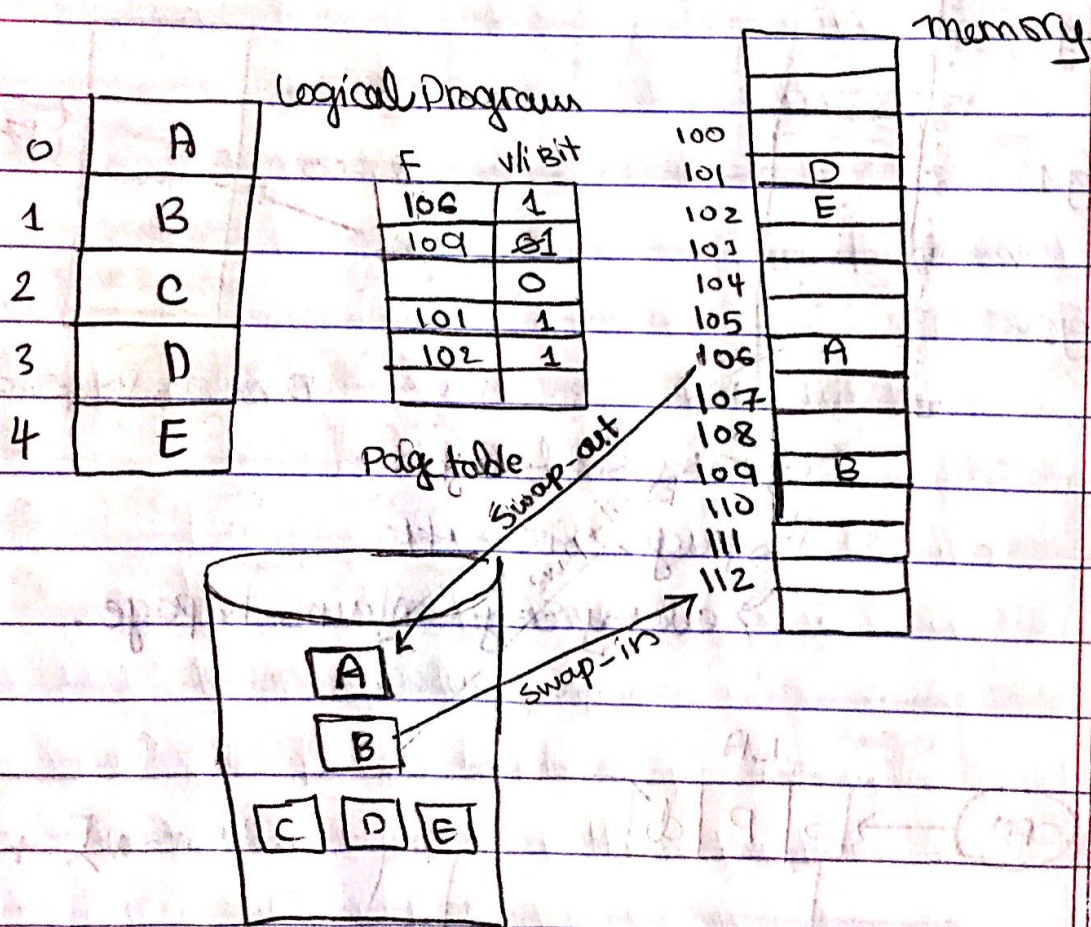 memory
Logical Program
0 A
1 B
2 C
3 D
4 E
F V/i Bit
106 1
109 01
0
101 1
102 1
Page table
100
101 D
102 E
103
104
105
106 A
107
108
109 B
110
111
112
Swap-out
Swap-in
A
B
C D E